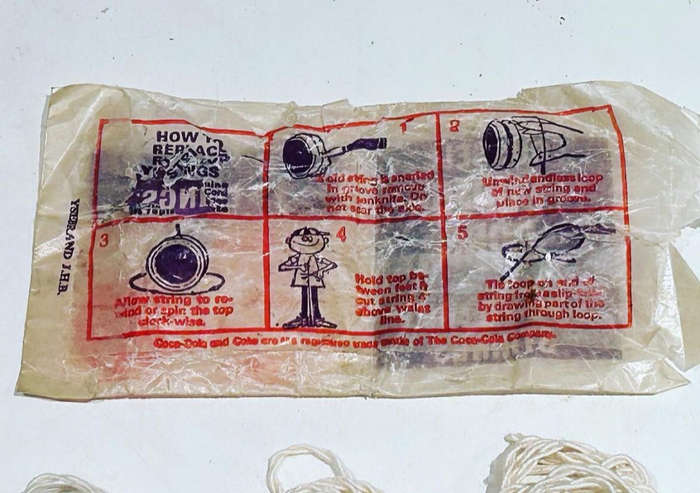 HOW TO
REPLACE
STRINGS
1
If old string is snarled
in groove remove
with penknife. Do
not scar the axle.
2
Unwind endless loop
of new string and
place in groove.
3
Allow string to re-
wind or spin the top
clock-wise.
4
Hold top be-
tween feet &
cut string 4"
above waist
line.
5
Tie loop on end of
string
by drawing part of the
string through loop.
Coca-Cola and Coke are the registered trade marks of The Coca-Cola Company.
J.H.B.